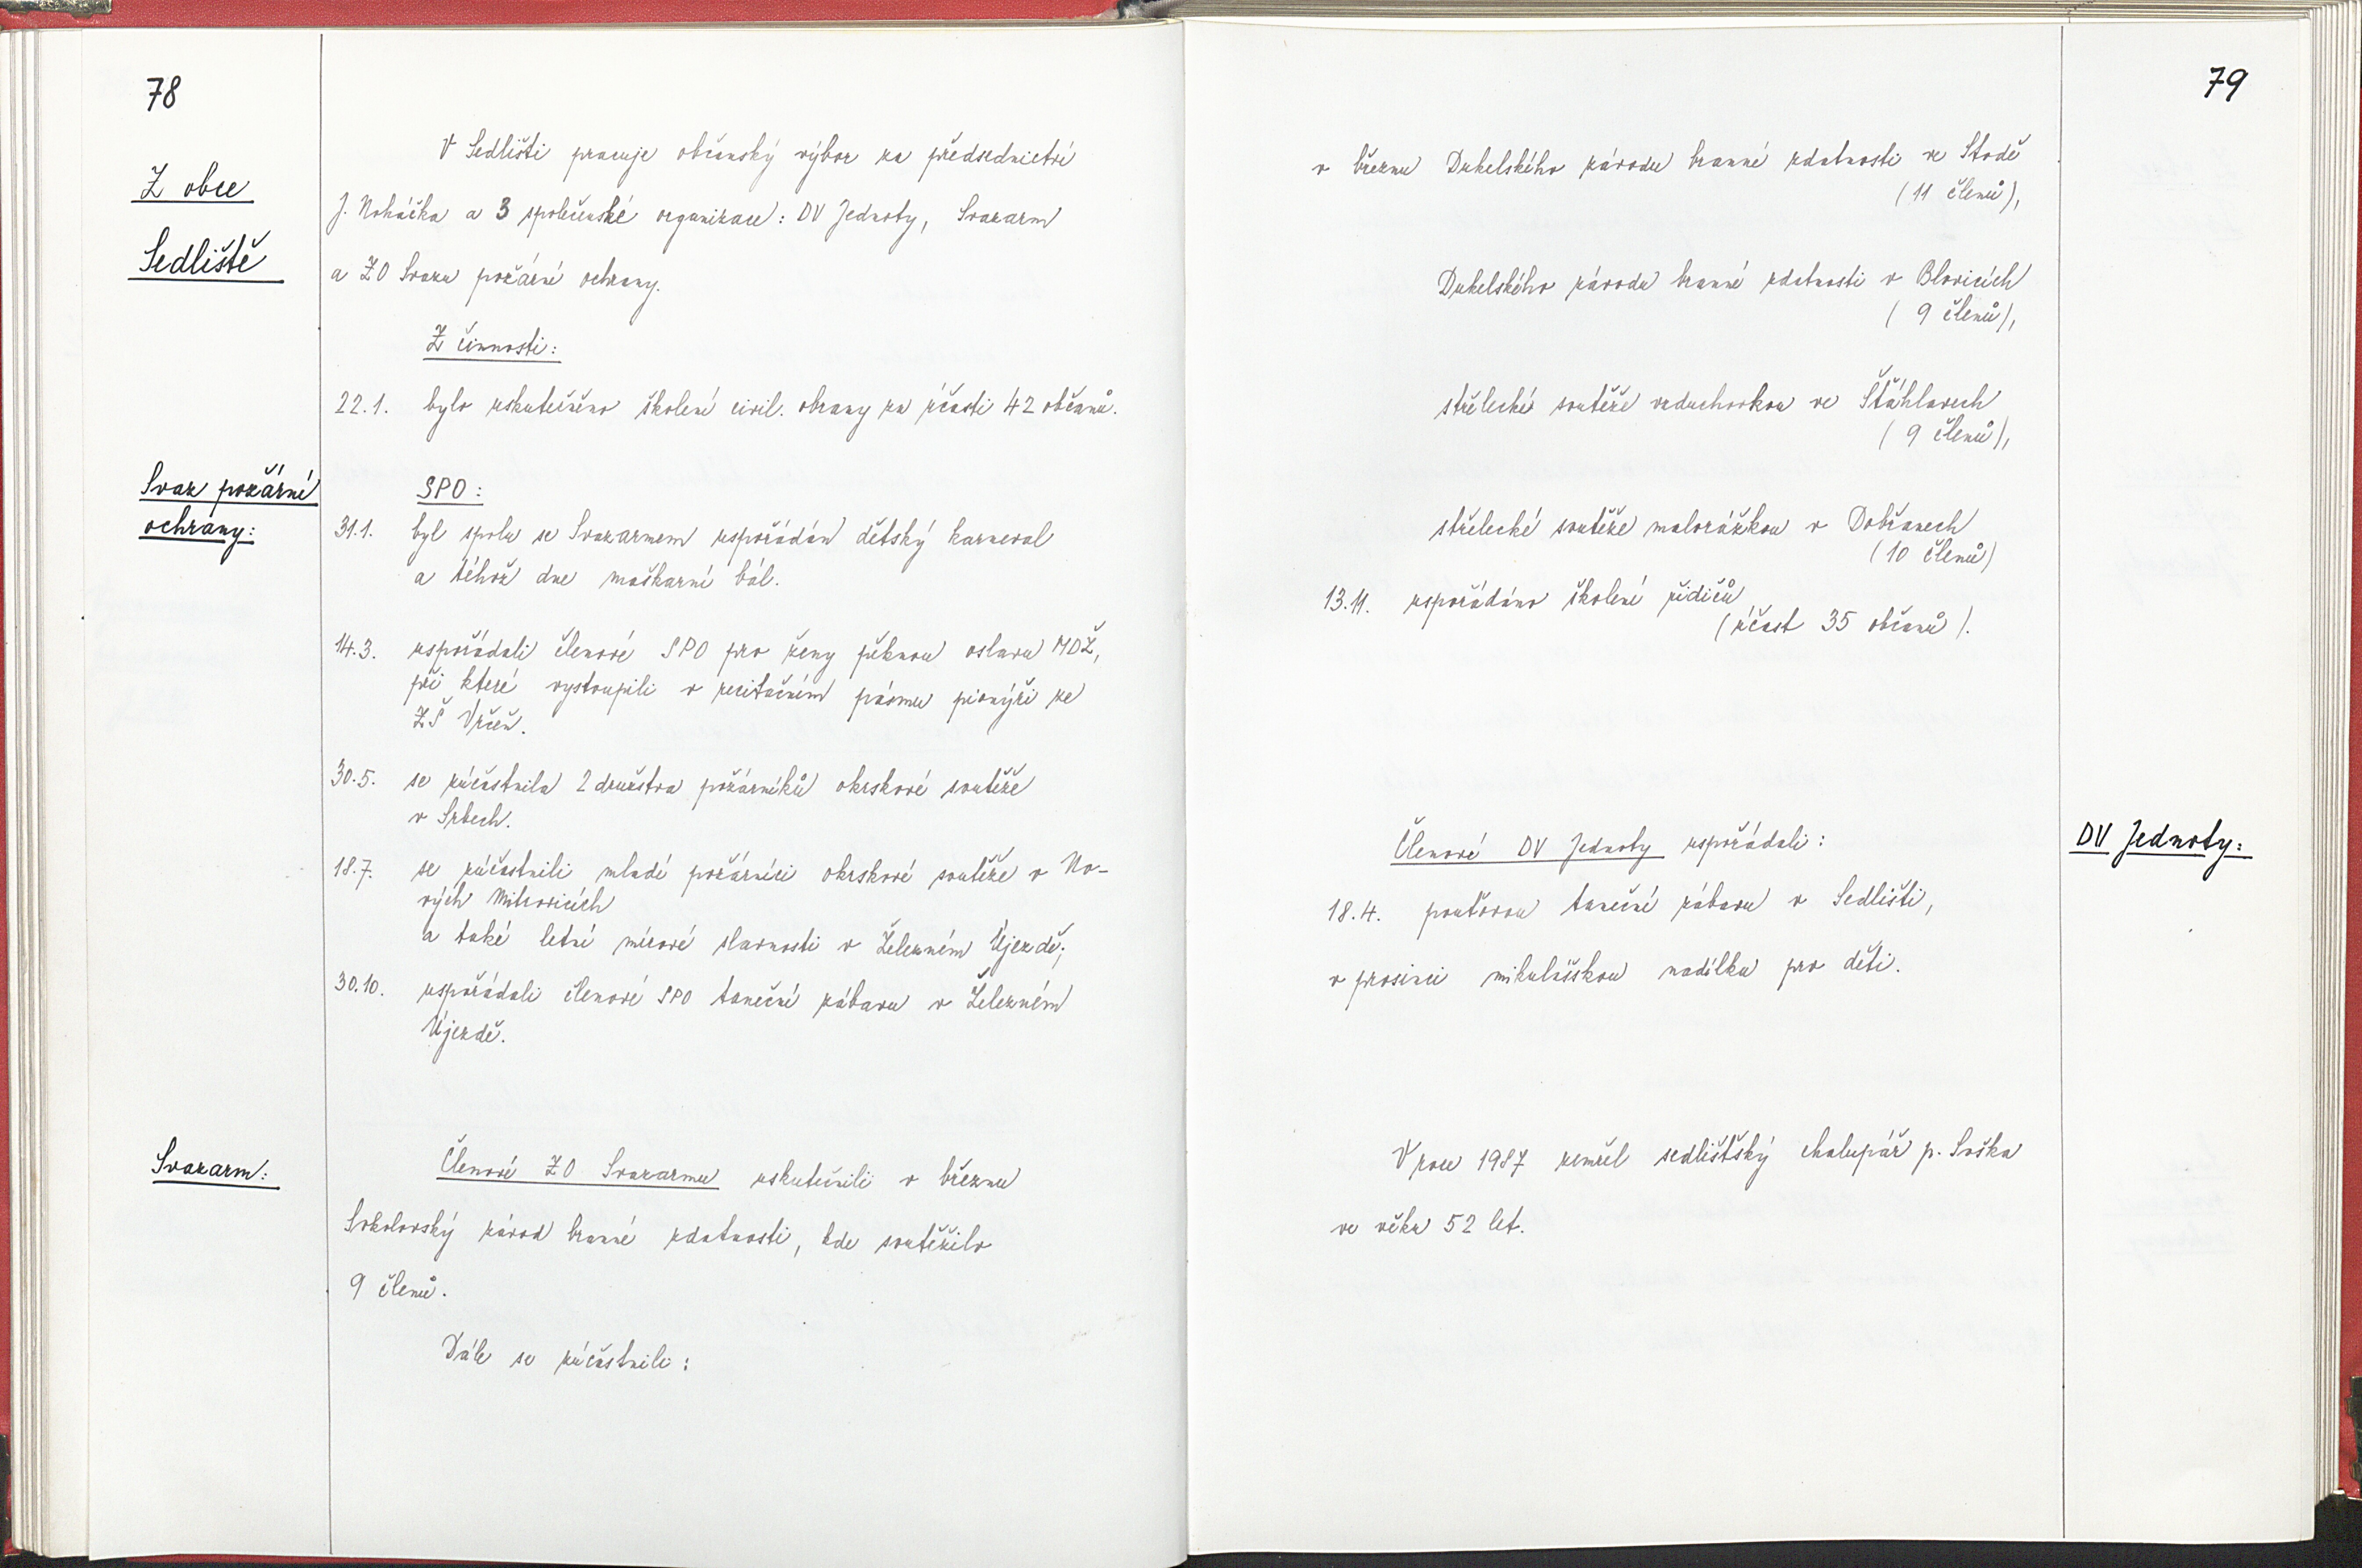 78
Z obce
Sedliště
V Sedlišti pracuje občanský výbor za předsednictví
J. Noháčka a 3 společenské organizace: DV Jednoty, Svazarm
a ZO Svazu požární ochrany.
Z činnosti:
22.1. bylo uskutečněno školení civil. obrany za účasti 42 občanů.
Svaz požární
ochrany:
SPO:
31.1. byl spolu se Svazarmem uspořádán dětský karneval
a téhož dne maškarní bál.
14.3. uspořádali členové SPO pro ženy pěknou oslavu MDŽ,
při které vystoupili v recitačním pásmu pionýři ze
ZŠ Vrčeň.
30.5. se zúčastnila 2 družstva požárníků okrskové soutěže
v Srbech.
18.7. se zúčastnili mladí požárníci okrskové soutěže v No-
vých Mitrovicích
a také letní mírové slavnosti v Železném Újezdě;
30.10. uspořádali členové SPO taneční zábavu v Železném
Újezdě.
Svazarm:
Členové ZO Svazarmu uskutečnili v březnu
Sokolovský závod branné zdatnosti, kde soutěžilo
9 členů.
Dále se zúčastnili:
79
v březnu Dukelského závodu branné zdatnosti ve Stodě
(11 členů),
Dukelského závodu branné zdatnosti v Blovicích
(9 členů),
střelecké soutěže vzduchovkou ve Štáhlavech
(9 členů),
střelecké soutěže malorážkou v Dobřanech
(10 členů)
13.11. uspořádáno školení řidičů
(účast 35 občanů).
DV Jednoty:
Členové DV Jednoty uspořádali:
18.4. pouťovou taneční zábavu v Sedlišti,
v prosinci mikulášskou nadílku pro děti.
V roce 1987 zemřel sedlišťský chalupář p. Soška
ve věku 52 let.